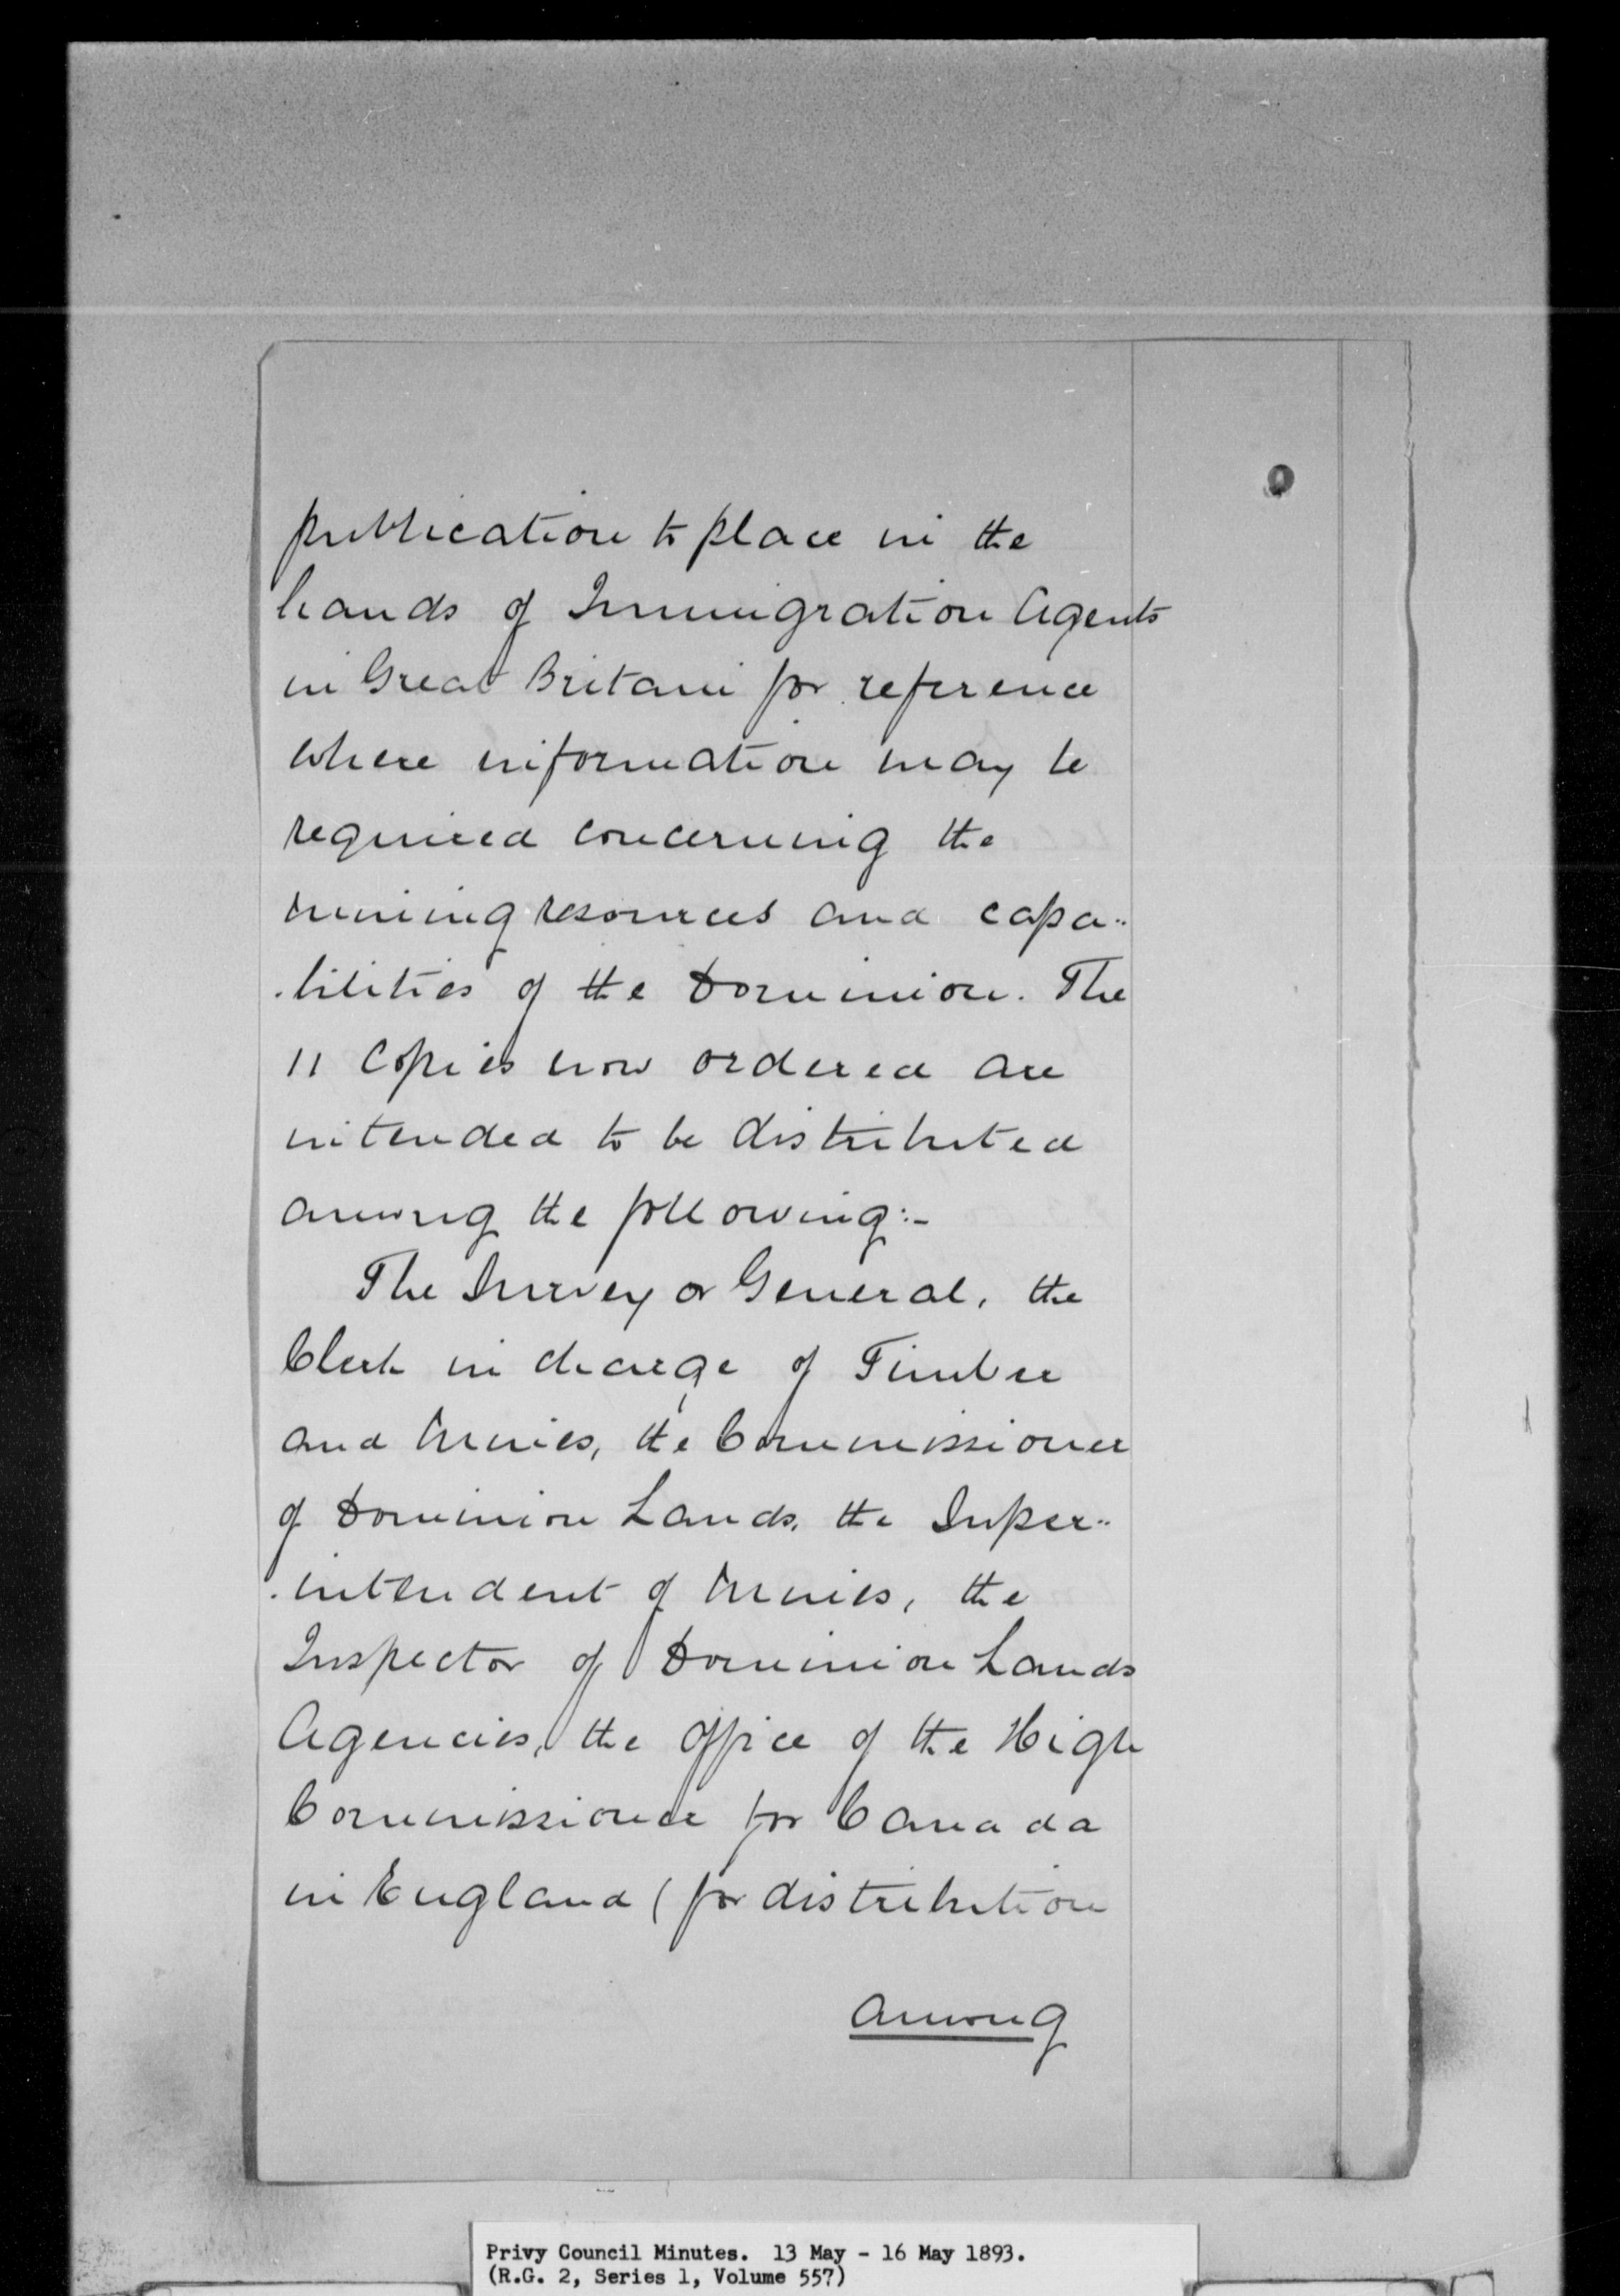 publication to place in the
hands of Immigration Agents
in Great Britain for reference
where information may be
required concerning the
mining resources and capa-
-bilities of the Dominion. The
11 Copies now ordered are
intended to be distributed
among the following:-
The Surveyor General, the
Clerk in charge of Timber
and Mines, the Commissioner
of Dominion Lands, the Super-
-intendent of Mines, the
Inspector of Dominion Lands
Agencies, the Office of the High
Commissioner for Canada
in England (for distribution
among
Privy Council Minutes. 13 May - 16 May 1893.
(R.G. 2, Series 1, Volume 557)